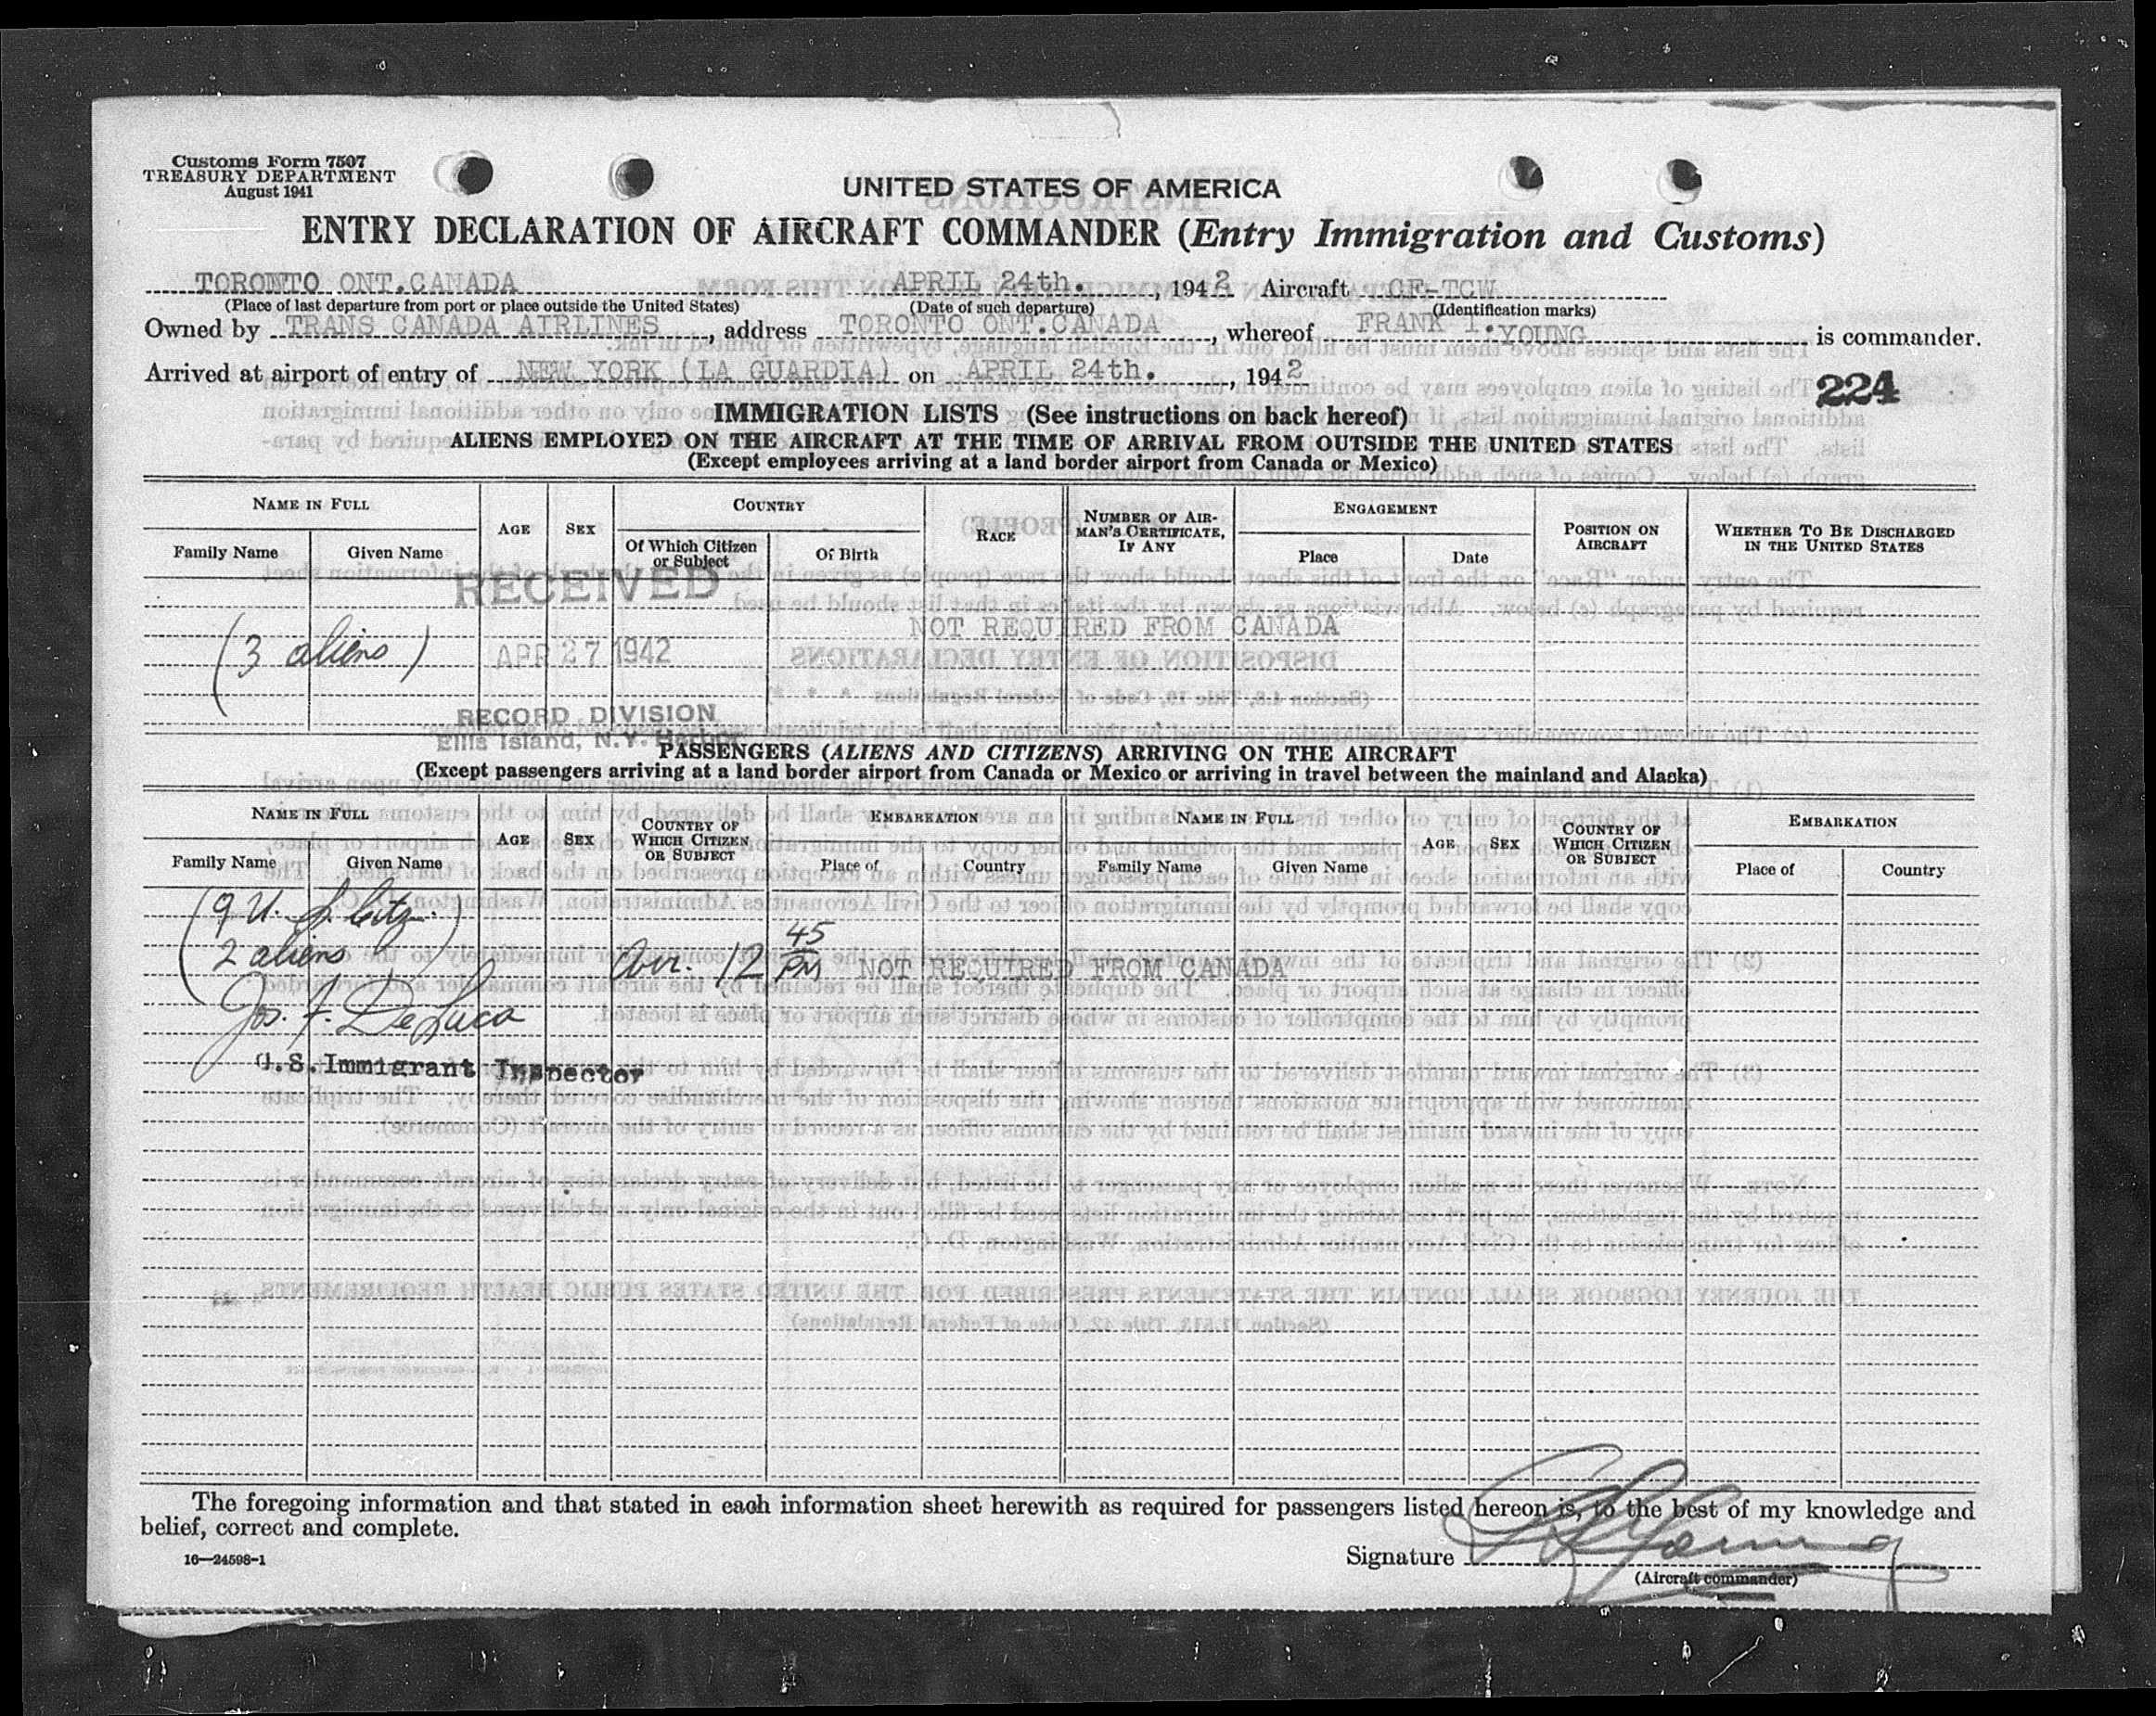 Customs Form 7507
TREASURY DEPARTMENT
August 1941
UNITED STATES OF AMERICA
ENTRY DECLARATION OF AIRCRAFT COMMANDER (Entry Immigration and Customs)
TORONTO ONT.CANADA APRIL 24th. , 1942 Aircraft CF-TCW
(Place of last departure from port or place outside the United States) (Date of such departure) (Identification marks)
Owned by TRANS CANADA AIRLINES , address TORONTO ONT.CANADA , whereof FRANK I. YOUNG is commander.
Arrived at airport of entry of NEW YORK (LA GUARDIA) on APRIL 24th. , 1942
224
IMMIGRATION LISTS (See instructions on back hereof)
ALIENS EMPLOYED ON THE AIRCRAFT AT THE TIME OF ARRIVAL FROM OUTSIDE THE UNITED STATES
(Except employees arriving at a land border airport from Canada or Mexico)
NAME IN FULL AGE SEX COUNTRY RACE NUMBER OF AIRMAN'S CERTIFICATE, IF ANY ENGAGEMENT POSITION ON AIRCRAFT WHETHER TO BE DISCHARGED IN THE UNITED STATES
Family Name Given Name Of Which Citizen or Subject Of Birth Place Date
RECEIVED
NOT REQUIRED FROM CANADA
(3 aliens) APR 27 1942
RECORD DIVISION
Ellis Island, N.Y. Harbor
PASSENGERS (ALIENS AND CITIZENS) ARRIVING ON THE AIRCRAFT
(Except passengers arriving at a land border airport from Canada or Mexico or arriving in travel between the mainland and Alaska)
NAME IN FULL AGE SEX COUNTRY OF WHICH CITIZEN OR SUBJECT EMBARKATION NAME IN FULL AGE SEX COUNTRY OF WHICH CITIZEN OR SUBJECT EMBARKATION
Family Name Given Name Place of Country Family Name Given Name Place of Country
(9 U. S. Citz.)
2 aliens arr. 12 45 PM NOT REQUIRED FROM CANADA
Jos. F. DeLuca
U.S.Immigrant Inspector
The foregoing information and that stated in each information sheet herewith as required for passengers listed hereon is, to the best of my knowledge and
belief, correct and complete.
16—24598-1
Signature
(Aircraft commander)